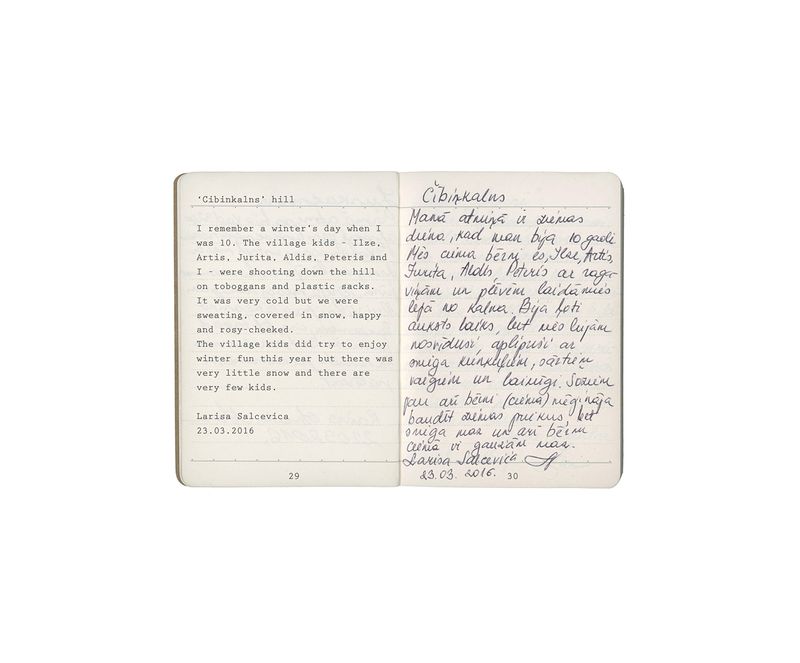 'Cibinkalns' hill
I remember a winter's day when I
was 10. The village kids - Ilze,
Artis, Jurita, Aldis, Peteris and
I - were shooting down the hill
on toboggans and plastic sacks.
It was very cold but we were
sweating, covered in snow, happy
and rosy-cheeked.
The village kids did try to enjoy
winter fun this year but there was
very little snow and there are
very few kids.
Larisa Salcevica
23.03.2016
29
Čibiņkalns
Manā atmiņā ir ziemas
diena, kad man bija 10 gadi.
Mēs ciema bērni es, Ilze, Artis,
Jurita, Aldis, Pēteris ar raga-
viņām un plēvēm laidāmies
lejā no kalna. Bija ļoti
auksts laiks, bet mēs bijām
nosvīduši, aplipuši ar
sniega kunkuļiem, sārtiem
vaigiem un laimīgi. Šoziem
gan arī bērni (ciema) mēģināja
baudīt ziemas priekus, bet
sniega maz un arī bērnu
ciemā ir gaužām maz.
Larisa Salceviča
23.03. 2016.
30